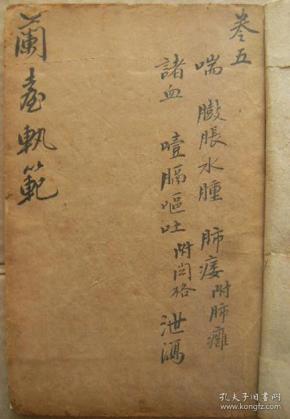 卷五
喘 臌脹水腫 肺痿附肺癰
諸血 噎膈嘔吐附関格 泄瀉
蘭臺軌範
孔夫子旧书网